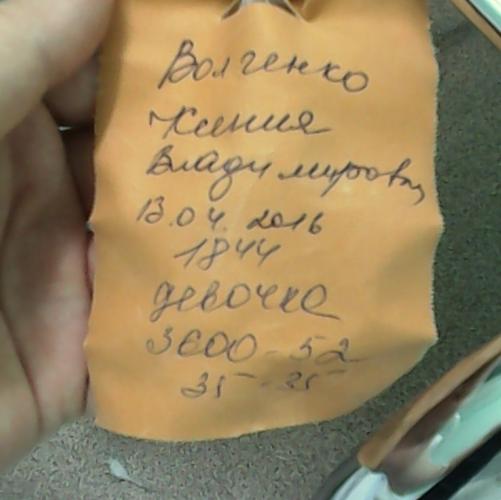 Волченко
Ксения
Владимировна
13.04.2016
1844
девочка
3600-52
35-35